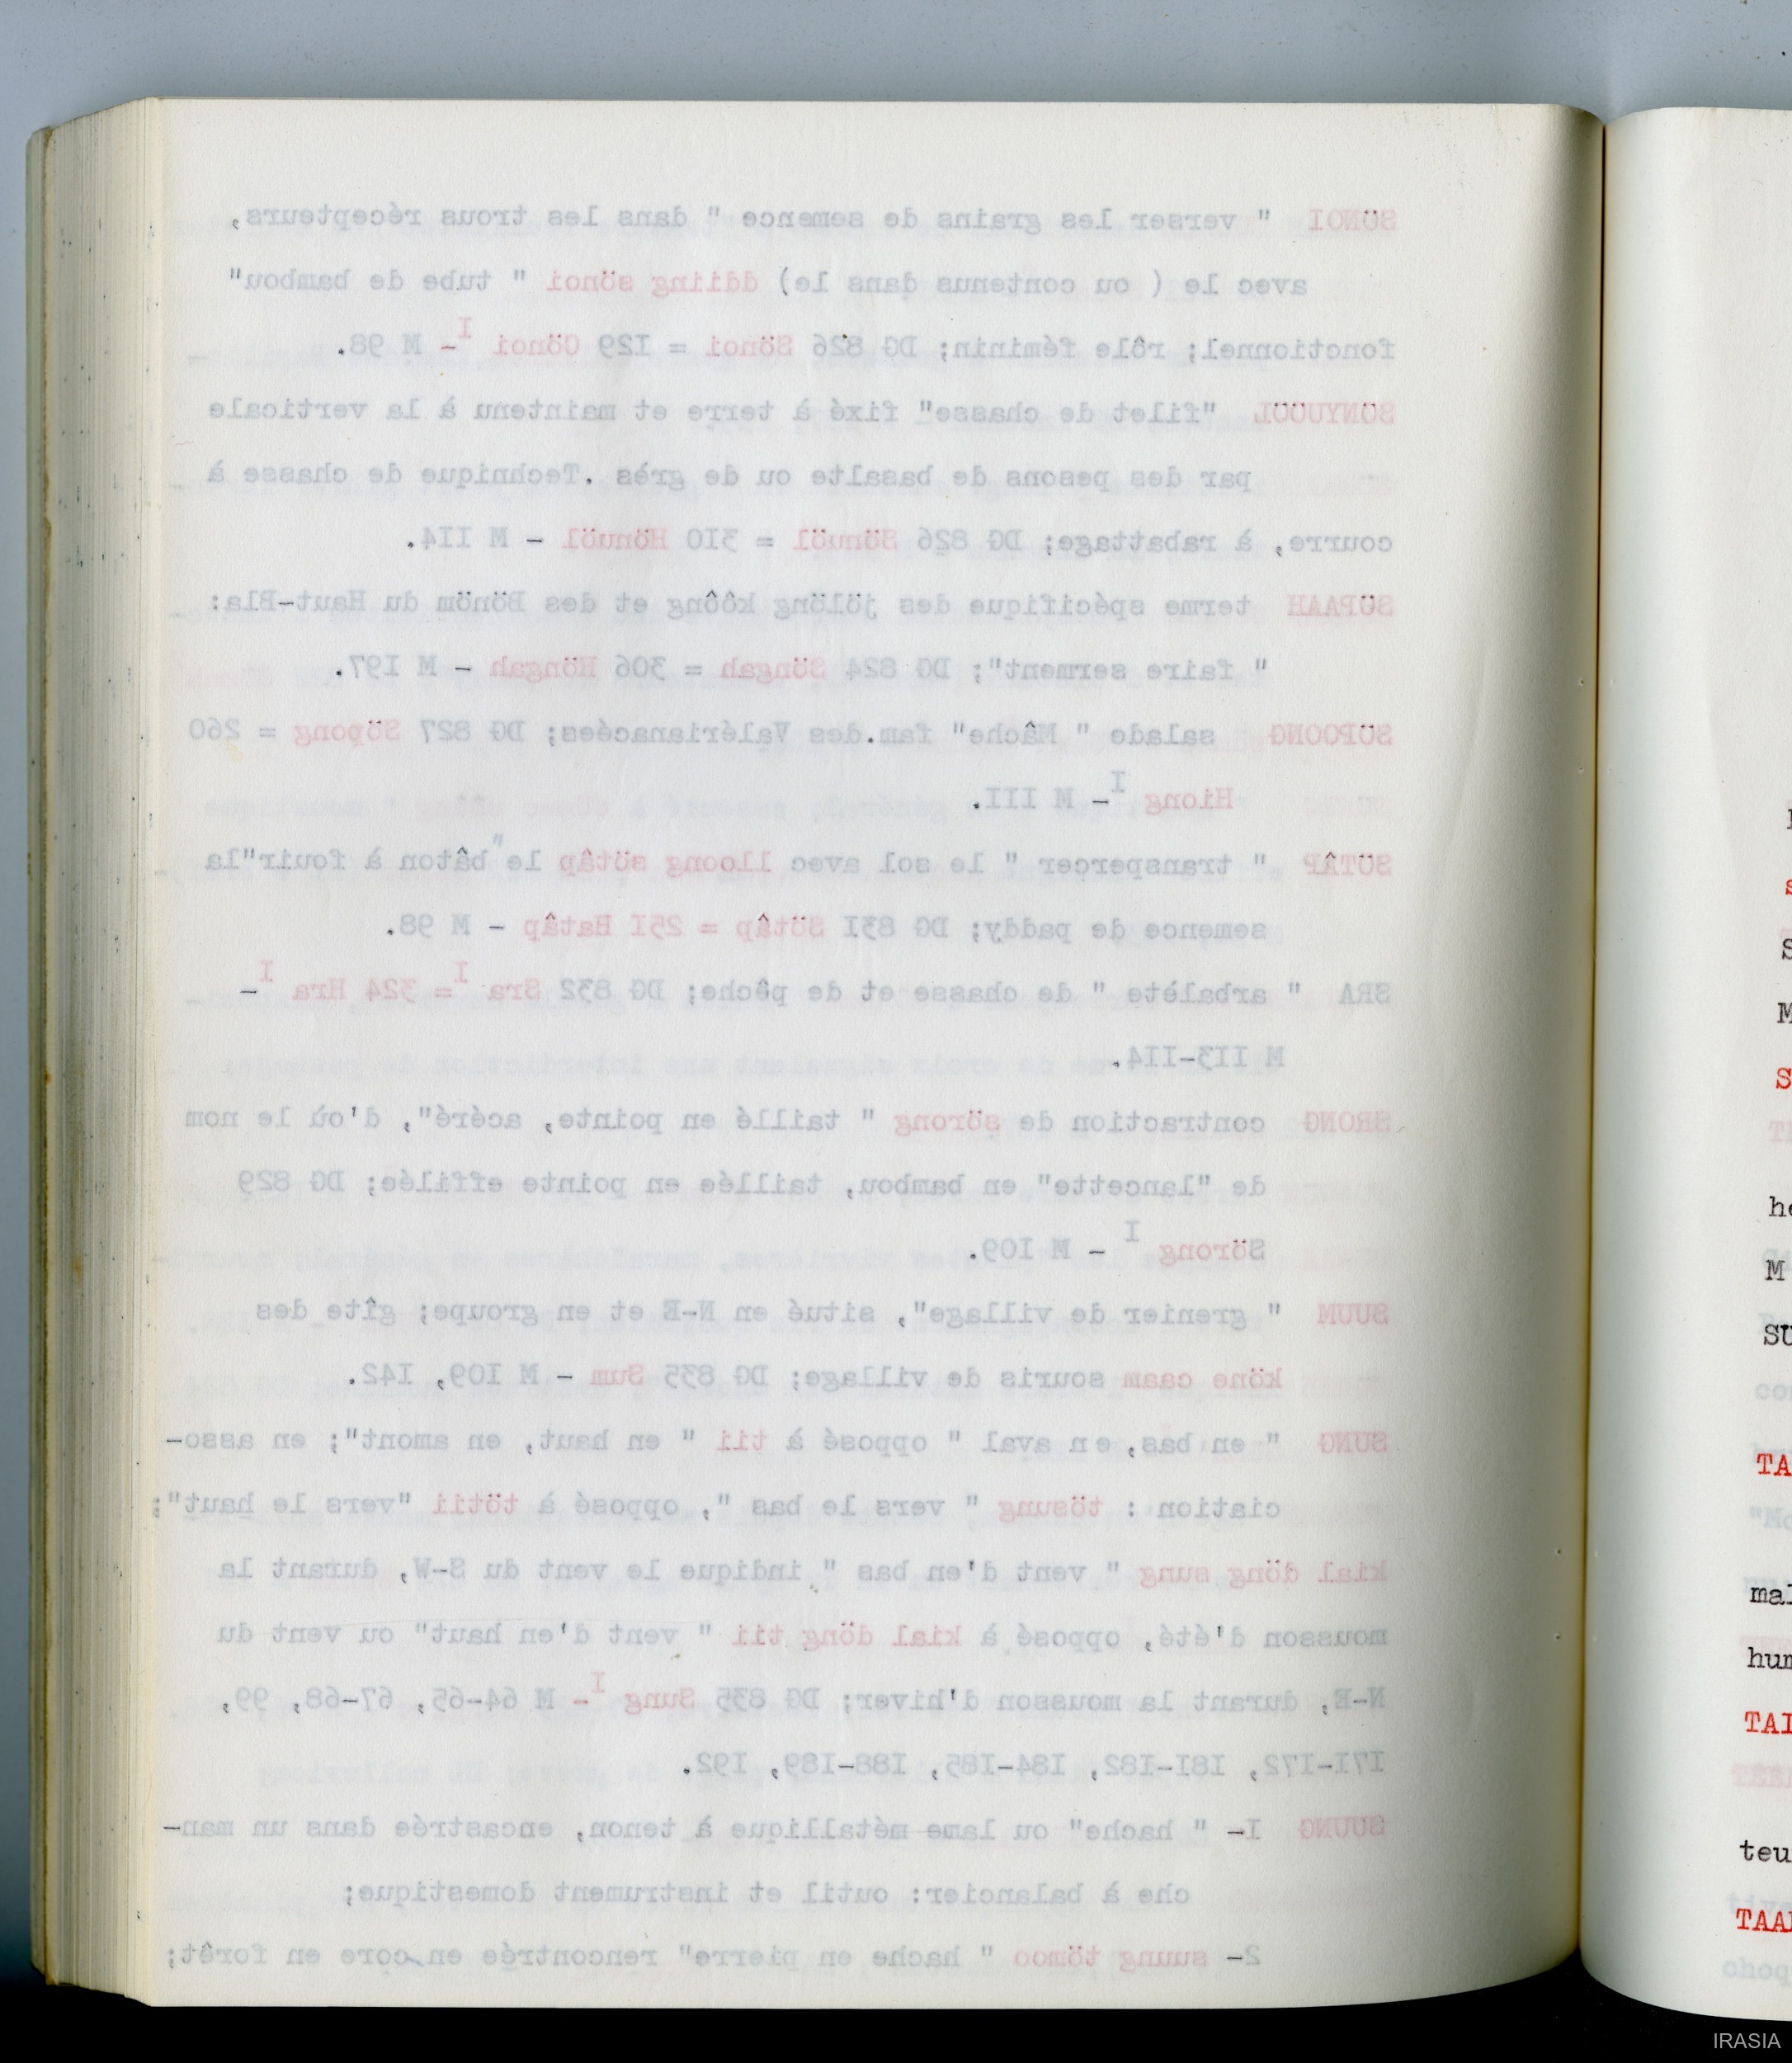 SÖNOI " verser les grains de semence " dans les trous récepteurs,
avec le ( ou contenus dans le) ddiing sönoi " tube de bambou"
fonctionnel; rôle féminin; DG 826 Sönoi = I29 Cönoi I- M 98.
SÖNYUÖÜL "filet de chasse" fixé à terre et maintenu à la verticale
par des pesons de basalte ou de grès .Technique de chasse à
courre, à rabattage; DG 826 Sömuöl = 3I0 Hömuöl - M II4.
SÖPAAH terme spécifique des jölöng kôông et des Bönöm du Haut-Bla:
" faire serment"; DG 824 Söngah = 306 Höngah - M I97.
SÖPOONG salade " Mâche" fam.des Valérianacées; DG 827 Söpong = 260
Hiong I- M III.
SÖTÂP " transpercer " le sol avec lloong sötâp le"bâton à fouir"la
semence de paddy; DG 83I Sötâp = 25I Hatâp - M 98.
SRA " arbalète " de chasse et de pêche; DG 832 Sra I= 324 Hra I-
M II3-II4.
SRONG contraction de sörong " taillé en pointe, acéré", d'où le nom
de "lancette" en bambou, taillée en pointe effilée; DG 829
Sörong I - M I09.
SUUM " grenier de village", situé en N-E et en groupe; gîte des
köne caam souris de village; DG 835 Sum - M I09, I42.
SUNG " en bas, en aval " opposé à tii " en haut, en amont"; en asso-
ciation : tösung " vers le bas ", opposé à tötii "vers le haut";
kial döng sung " vent d'en bas " indique le vent du S-W, durant la
mousson d'été, opposé à kial döng tii " vent d'en haut" ou vent du
N-E, durant la mousson d'hiver; DG 835 Sung I- M 64-65, 67-68, 99,
I7I-I72, I8I-I82, I84-I85, I88-I89, I92.
SUUNG I- " hache" ou lame métallique à tenon, encastrée dans un man-
che à balancier: outil et instrument domestique;
2- suung tömoo " hache en pierre" rencontrée encore en forêt;
M
S
he
M
SU
TA
mal
hum
TAI
teu
TAA
IRASIA